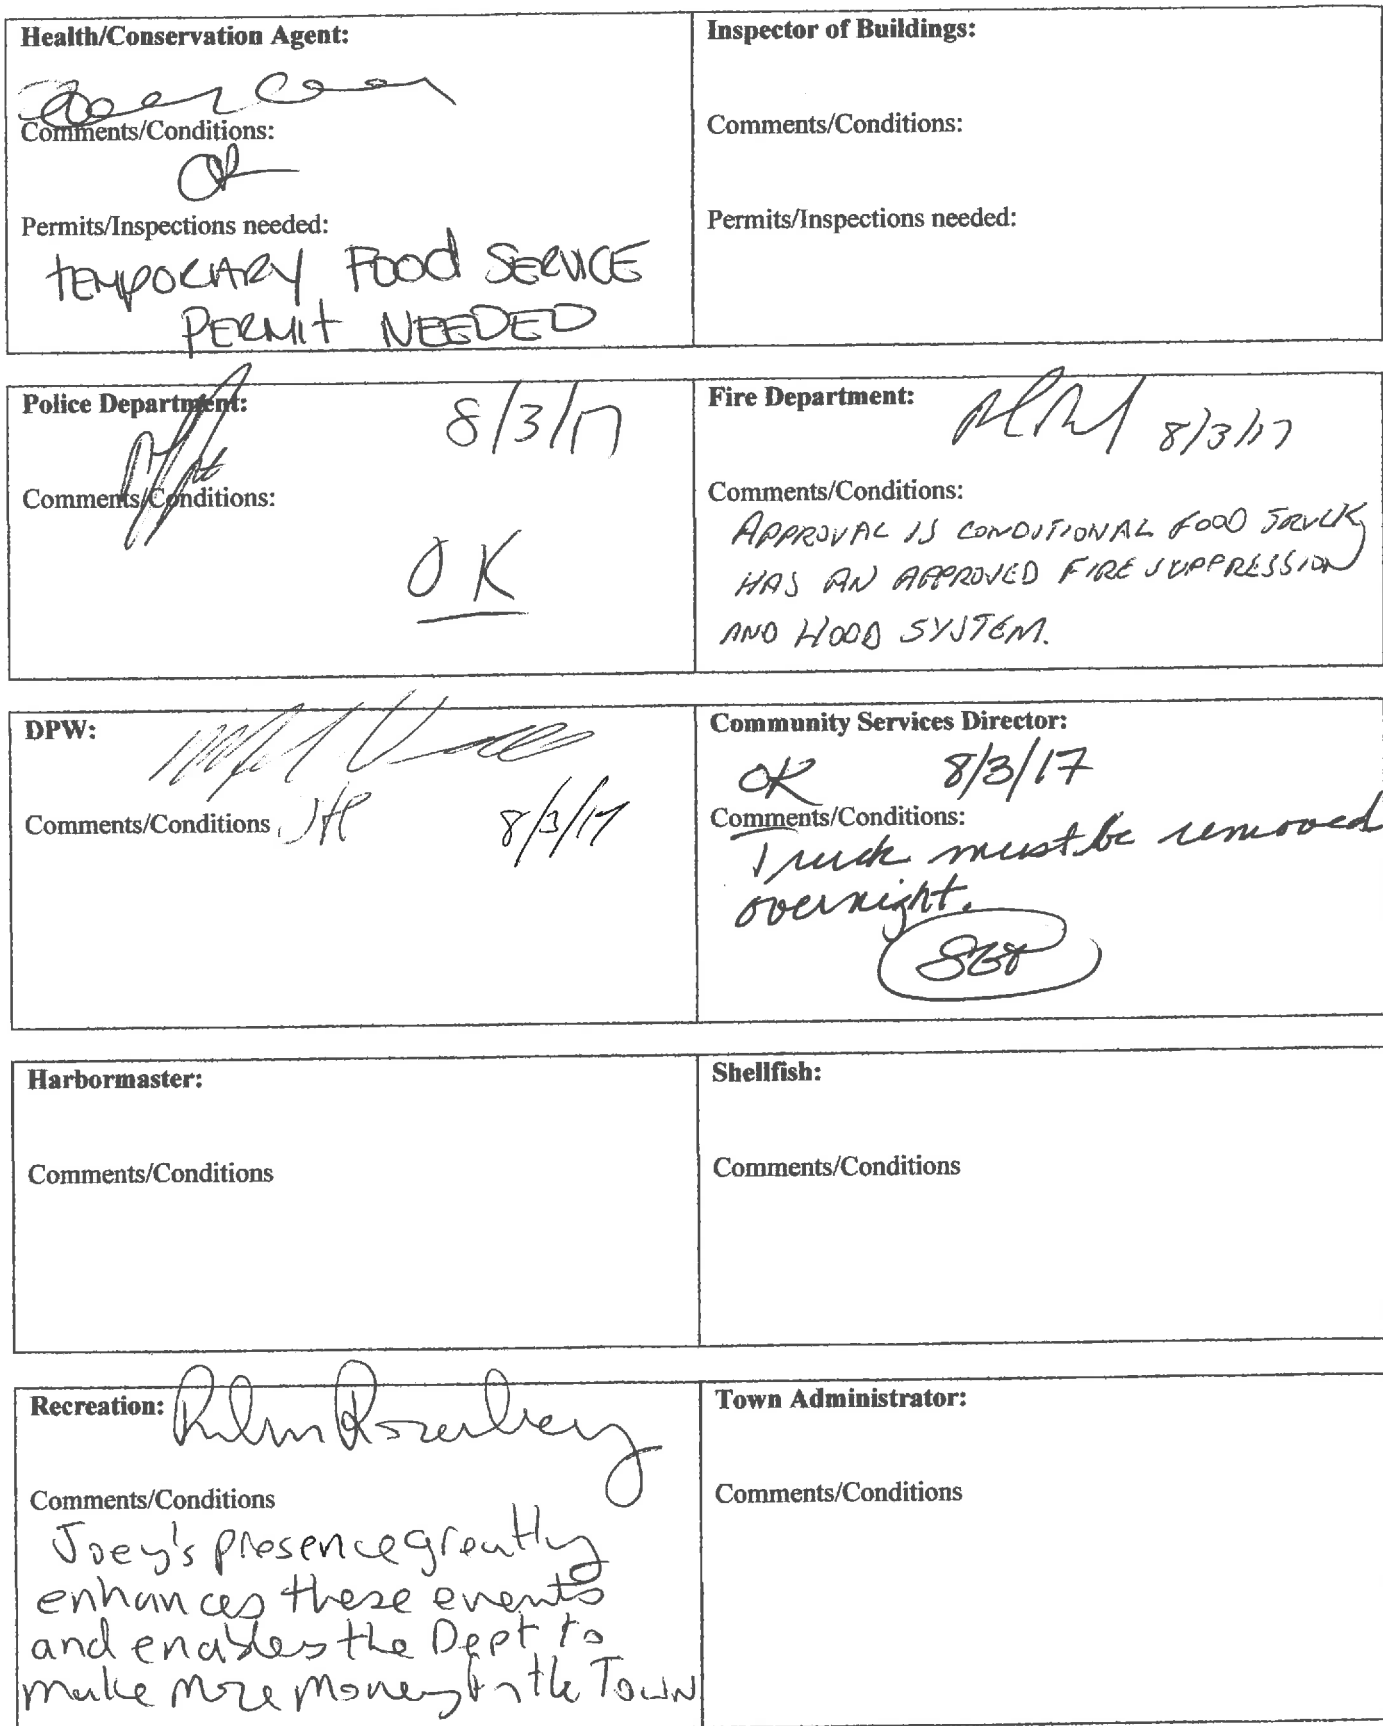 Health/Conservation Agent:
Comments/Conditions:
OK
Permits/Inspections needed:
TEMPORARY FOOD SERVICE
PERMIT NEEDED
Inspector of Buildings:
Comments/Conditions:
Permits/Inspections needed:
Police Department:
8/3/17
Comments/Conditions:
OK
Fire Department:
8/3/17
Comments/Conditions:
APPROVAL IS CONDITIONAL FOOD TRUCK
HAS AN APPROVED FIRE SUPPRESSION
AND HOOD SYSTEM.
DPW:
Comments/Conditions
8/3/17
Community Services Director:
OK 8/3/17
Comments/Conditions:
Truck must be removed
overnight.
Harbormaster:
Comments/Conditions
Shellfish:
Comments/Conditions
Recreation:
Comments/Conditions
Joey's presence greatly
enhances these events
and enables the Dept to
make more money for the Town
Town Administrator:
Comments/Conditions